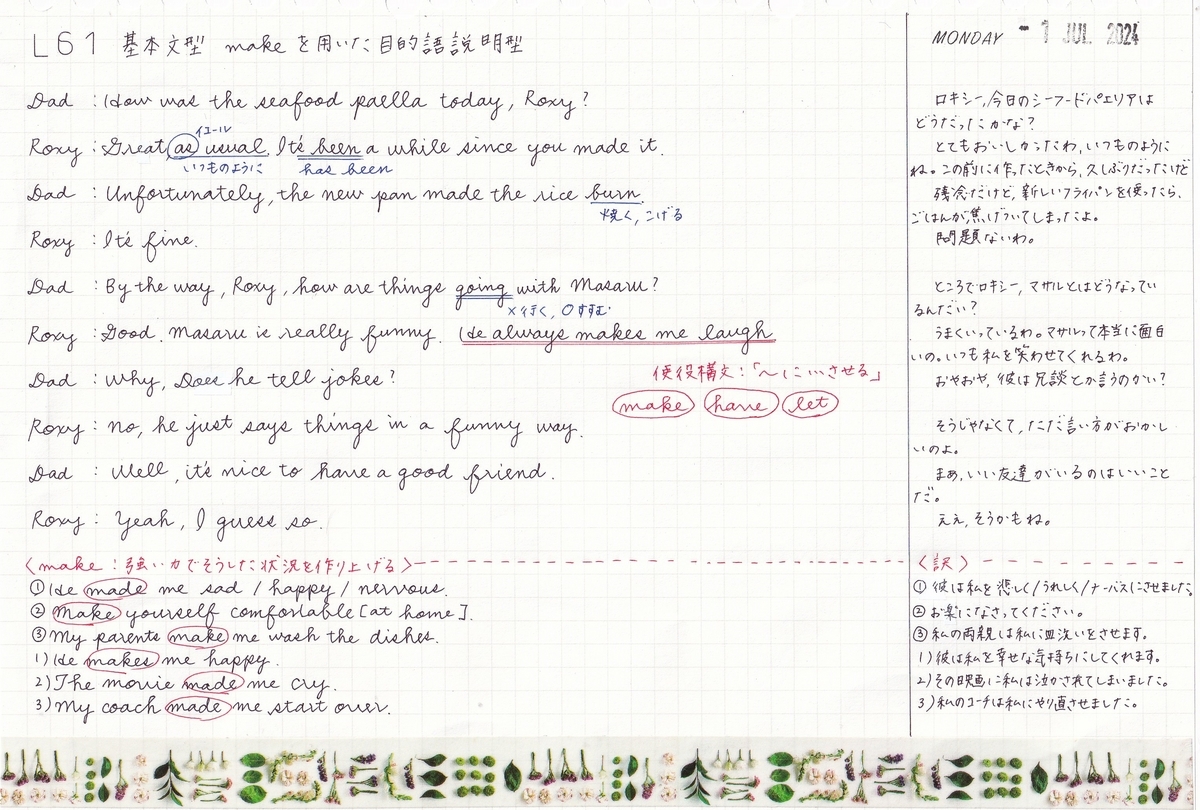 L61 基本文型 makeを用いた目的語説明型
MONDAY - 1 JUL 2024
Dad : How was the seafood paella today, Roxy?
イユール
Roxy : Great as usual. It's been a while since you made it.
いつものように has been
Dad : Unfortunately, the new pan made the rice burn.
焼く, こげる
Roxy : It's fine.
Dad : By the way, Roxy, how are things going with Masaru?
×行く, ○すすむ
Roxy : Good. Masaru is really funny. He always makes me laugh
使役構文:「〜に…させる」
Dad : Why, Does he tell jokes?
make have let
Roxy : No, he just says things in a funny way.
Dad : Well, it's nice to have a good friend.
Roxy : Yeah, I guess so.
ロキシー, 今日のシーフードパエリアは
どうだったかな?
とてもおいしかったわ, いつものように
ね。この前に作ったときから, 久しぶりだったけど
残念だけど, 新しいフライパンを使ったら,
ごはんが焦げついてしまったよ。
問題ないわ。
ところでロキシー, マサルとはどうなってい
るんだい?
うまくいっているわ。マサルって本当に面白
いの。いつも私を笑わせてくれるわ。
おやおや, 彼は冗談とか言うのかい?
そうじゃなくて, ただ言い方がおかし
いのよ。
まぁ, いい友達がいるのはいいこと
だ。
ええ, そうかもね。
〈make : 強い力でそうした状況を作り上げる〉
① He made me sad / happy / nervous.
② Make yourself comfortable [at home].
③ My parents make me wash the dishes.
1) He makes me happy.
2) The movie made me cry.
3) My coach made me start over.
〈訳〉
① 彼は私を悲しく/うれしく/ナーバスにさせました。
② お楽になさってください。
③ 私の両親は私に皿洗いをさせます。
1) 彼は私を幸せな気持ちにしてくれます。
2) その映画に私は泣かされてしまいました。
3) 私のコーチは私にやり直させました。